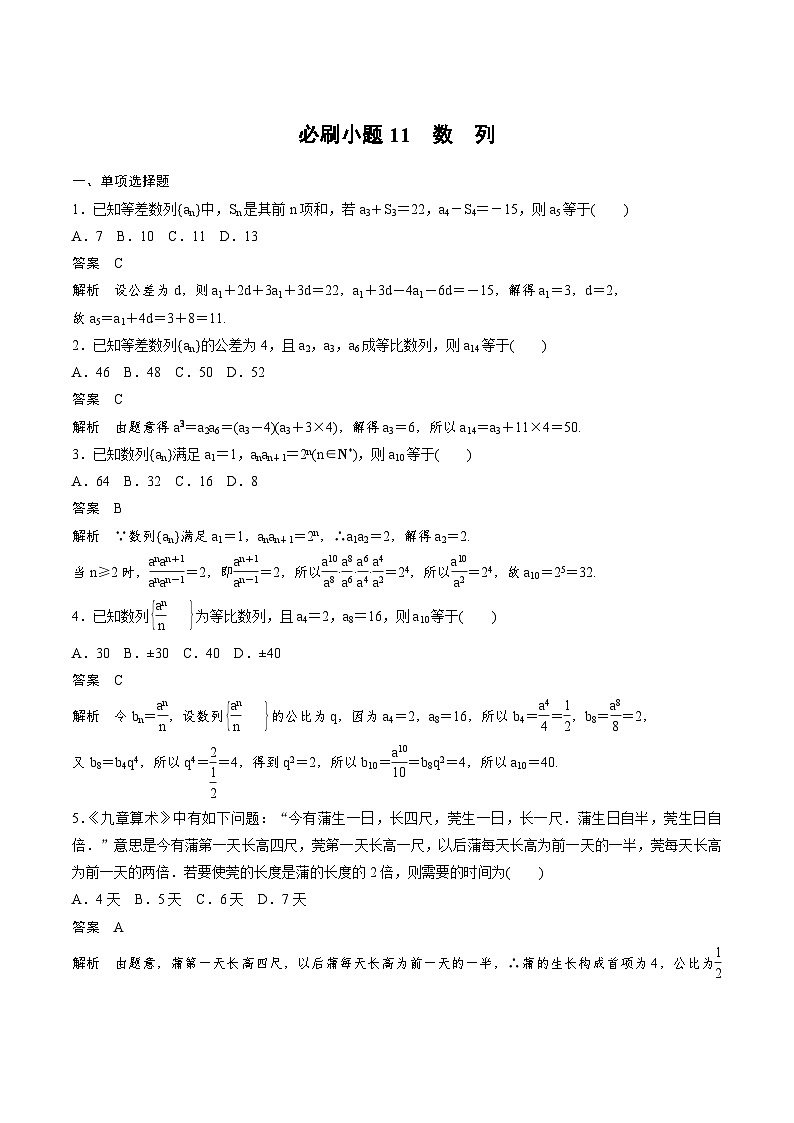 必刷小题11 数 列
一、单项选择题
1．已知等差数列{an}中，Sn是其前n项和，若a3＋S3＝22，a4－S4＝－15，则a5等于( )
A．7 B．10 C．11 D．13
答案 C
解析 设公差为d，则a1＋2d＋3a1＋3d＝22，a1＋3d－4a1－6d＝－15，解得a1＝3，d＝2，
故a5＝a1＋4d＝3＋8＝11.
2．已知等差数列{an}的公差为4，且a2，a3，a6成等比数列，则a14等于( )
A．46 B．48 C．50 D．52
答案 C
解析 由题意得a＝a2a6＝(a3－4)(a3＋3×4)，解得a3＝6，所以a14＝a3＋11×4＝50.
3．已知数列{an}满足a1＝1，anan＋1＝2n(n∈N*)，则a10等于( )
A．64 B．32 C．16 D．8
答案 B
解析 ∵数列{an}满足a1＝1，anan＋1＝2n，∴a1a2＝2，解得a2＝2.
当n≥2时，anan＋1/anan－1＝2，即an＋1/an－1＝2，所以a10/a8·a8/a6·a6/a4·a4/a2＝24，所以a10/a2＝24，故a10＝25＝32.
4．已知数列{an/n}为等比数列，且a4＝2，a8＝16，则a10等于( )
A．30 B．±30 C．40 D．±40
答案 C
解析 令bn＝an/n，设数列{an/n}的公比为q，因为a4＝2，a8＝16，所以b4＝a4/4＝1/2，b8＝a8/8＝2，
又b8＝b4q4，所以q4＝2/(1/2)＝4，得到q2＝2，所以b10＝a10/10＝b8q2＝4，所以a10＝40.
5．《九章算术》中有如下问题：“今有蒲生一日，长四尺，莞生一日，长一尺．蒲生日自半，莞生日自
倍．”意思是今有蒲第一天长高四尺，莞第一天长高一尺，以后蒲每天长高为前一天的一半，莞每天长高
为前一天的两倍．若要使莞的长度是蒲的长度的2倍，则需要的时间为( )
A．4天 B．5天 C．6天 D．7天
答案 A
解析 由题意，蒲第一天长高四尺，以后蒲每天长高为前一天的一半，∴蒲的生长构成首项为4，公比为1/2